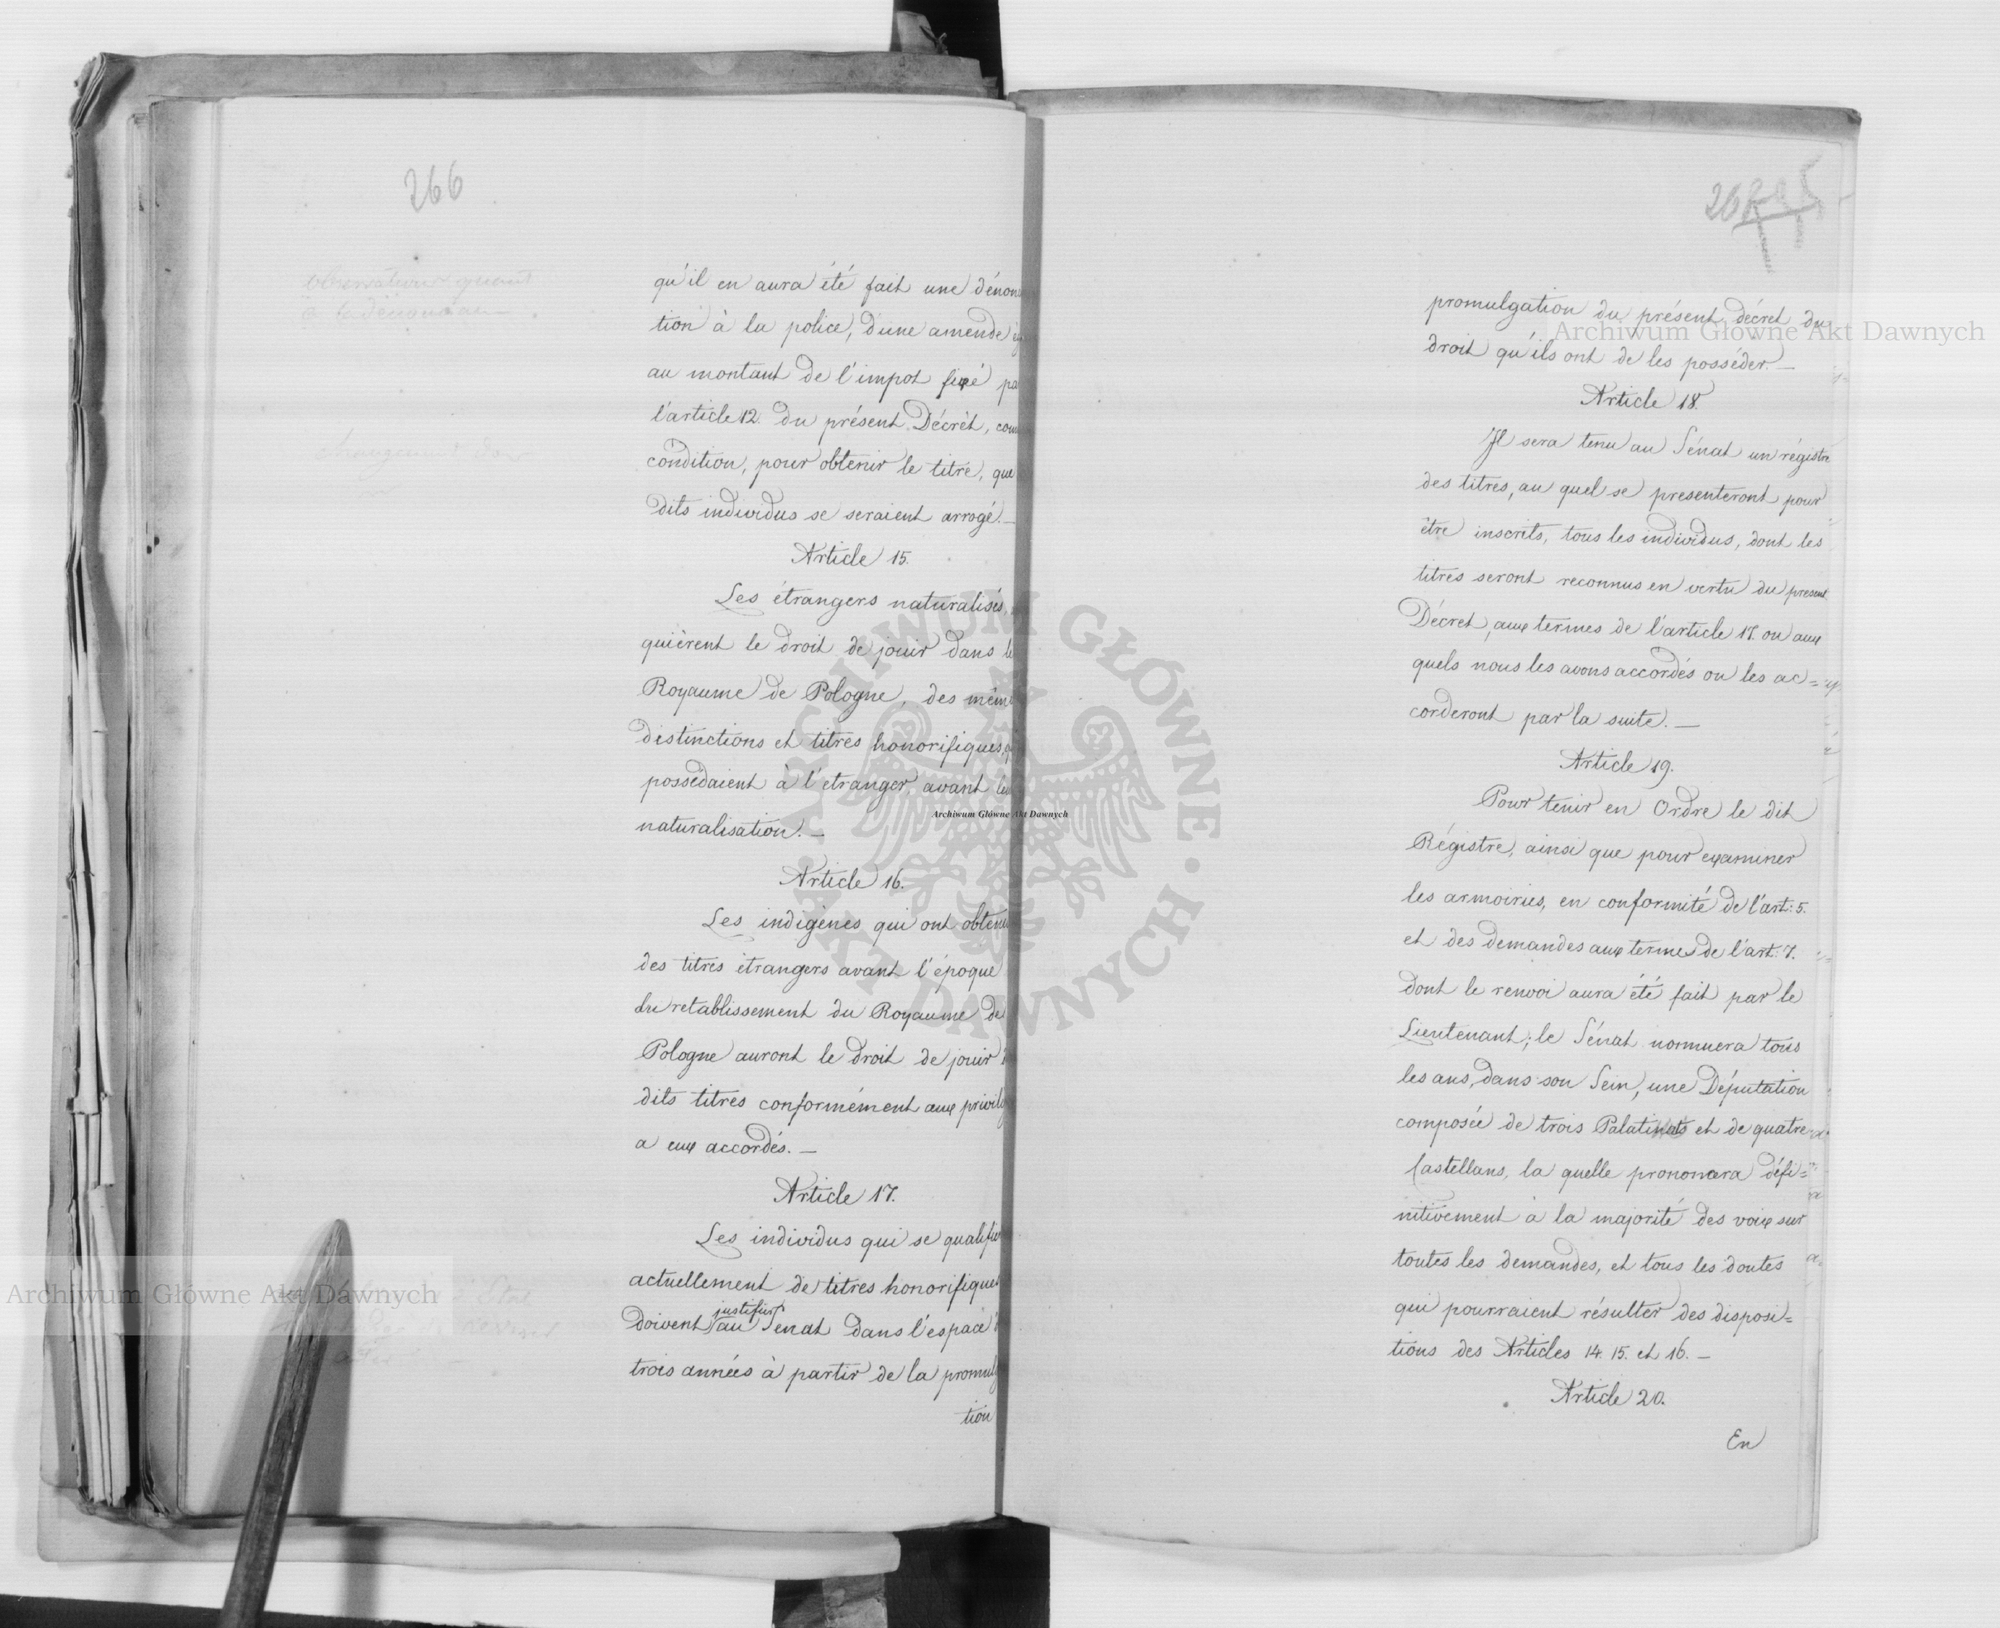 266
observations quant
a la dénonciation
changement
qu'il en aura été fait une dénon
tion à la police, d'une amende
au montant de l'impot fixé pa
l'article 12. du présent Décrèt, com
condition, pour obtenir le titre, que
dits individus se seraient arrogé. —
Article 15.
Les étrangers naturalisés,
quièrent le droit de jouir dans le
Royaume de Pologne, des mêm
distinctions et titres honorifiques,
possedaient à l'etranger, avant leu
naturalisation. —
Article 16.
Les indigènes qui ont obtenu
des titres étrangers avant l'époque
du retablissement du Royaume de
Pologne auront le droit de jouir
dits titres conformément aux privilè
a eux accordés. —
Article 17.
Les individus qui se qualifi
actuellement de titres honorifiques
justifier
doivent au Senat dans l'espace
trois années à partir de la promulg
tion
promulgation du présent décret du
droit qu'ils ont de les posséder. —
Article 18.
Il sera tenu au Sénat un régistre
des titres, au quel se presenteront pour
être inscrits, tous les individus, dont les
titres seront reconnus en vertu du present
Décret, aux termes de l'article 17. ou aux
quels nous les avons accordés ou les ac=
corderont par la suite. —
Article 19.
Pour tenir en Ordre le dit
Régistre, ainsi que pour examiner
les armoiries, en conformité de l'art: 5.
et des demandes aux termes de l'art: 7.
dont le renvoi aura été fait par le
Lieutenant; le Sénat nommera tous
les ans, dans son Sein, une Députation
composée de trois Palatinats et de quatre
Castellans, la quelle prononcera défi=
nitivement à la majorité des voix sur
toutes les demandes, et tous les doutes
qui pourraient résulter des disposi=
tions des Articles 14. 15. et 16. —
Article 20.
En
Archiwum Główne Akt Dawnych
Archiwum Główne Akt Dawnych
Archiwum Główne Akt Dawnych
ARCHIWUM GŁÓWNE · AKT DAWNYCH ·